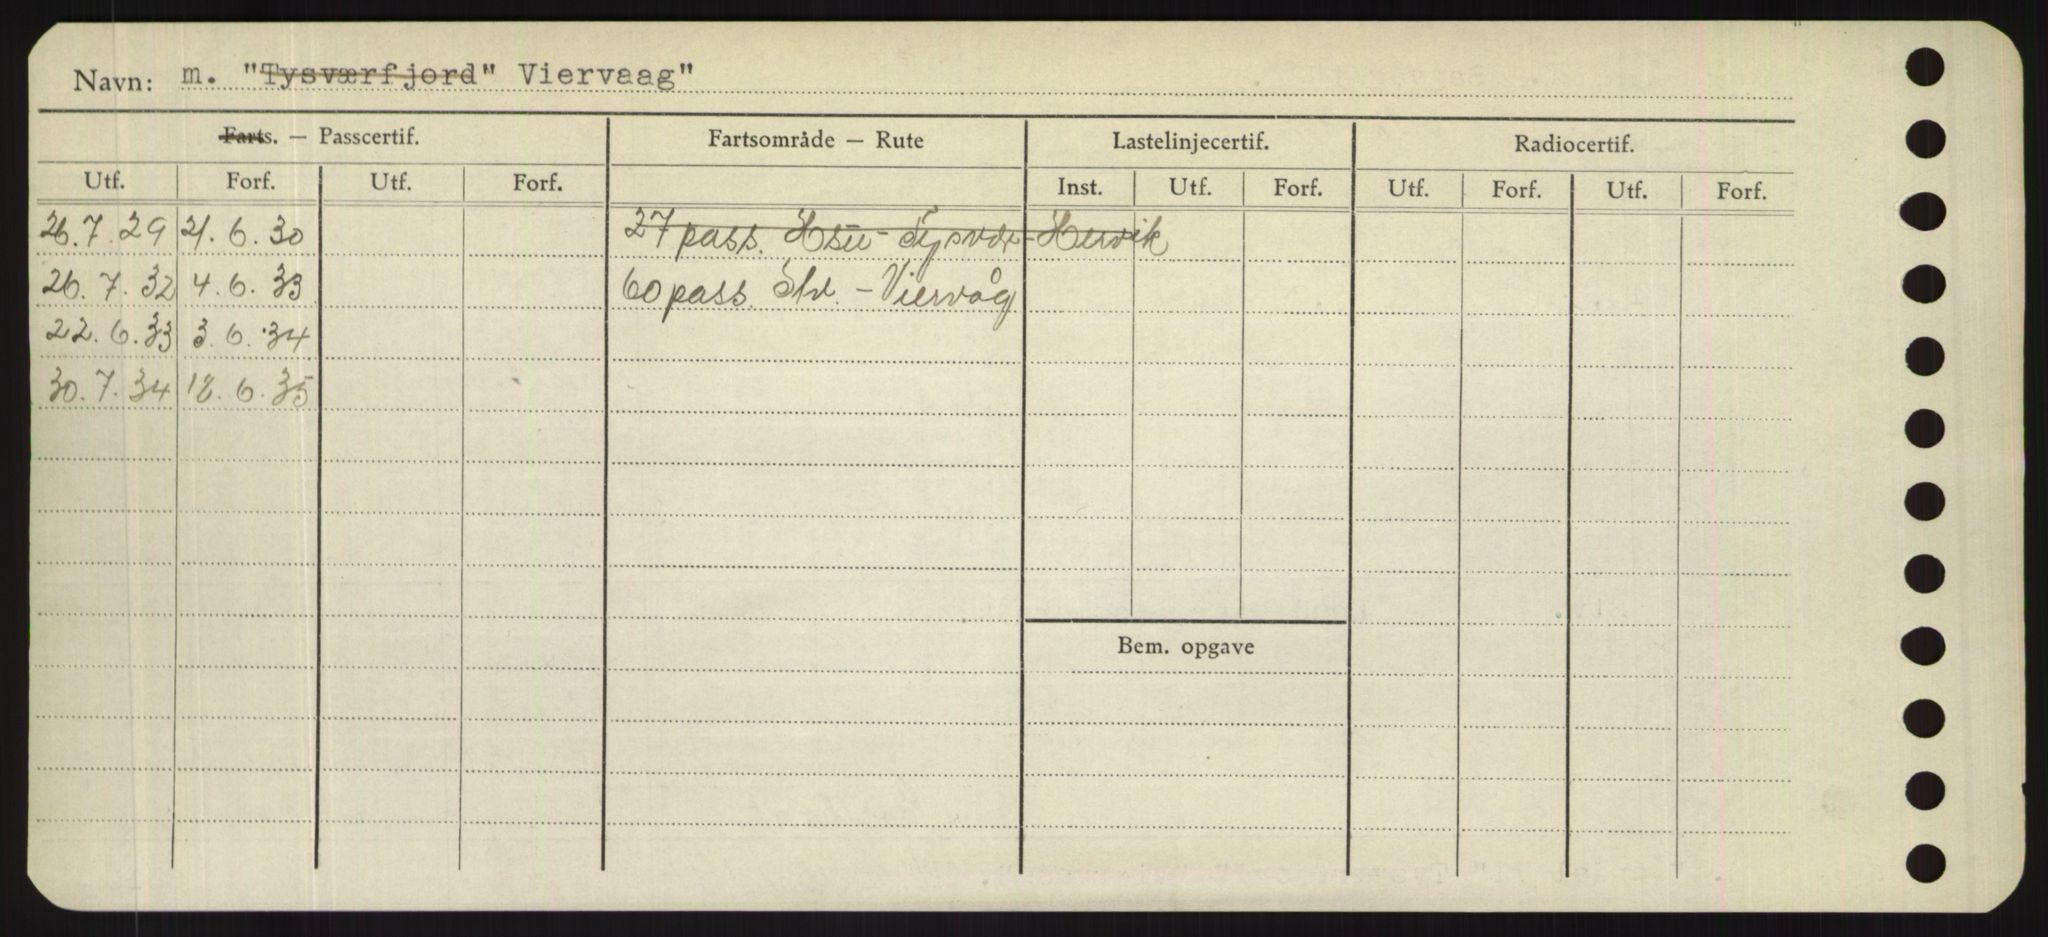 Navn: m. "Tysværfjord" Viervaag"
Farts. — Passcertif. Fartsområde — Rute Lastelinjecertif. Radiocertif.
Utf. Forf. Utf. Forf. Inst. Utf. Forf. Utf. Forf. Utf. Forf.
26.7.29 21.6.30 27 pass. Tysvær - Hervik
26.7.32 4.6.33 60 pass. - Viervåg
22.6.33 3.6.34
30.7.34 18.6.35
Bem. opgave